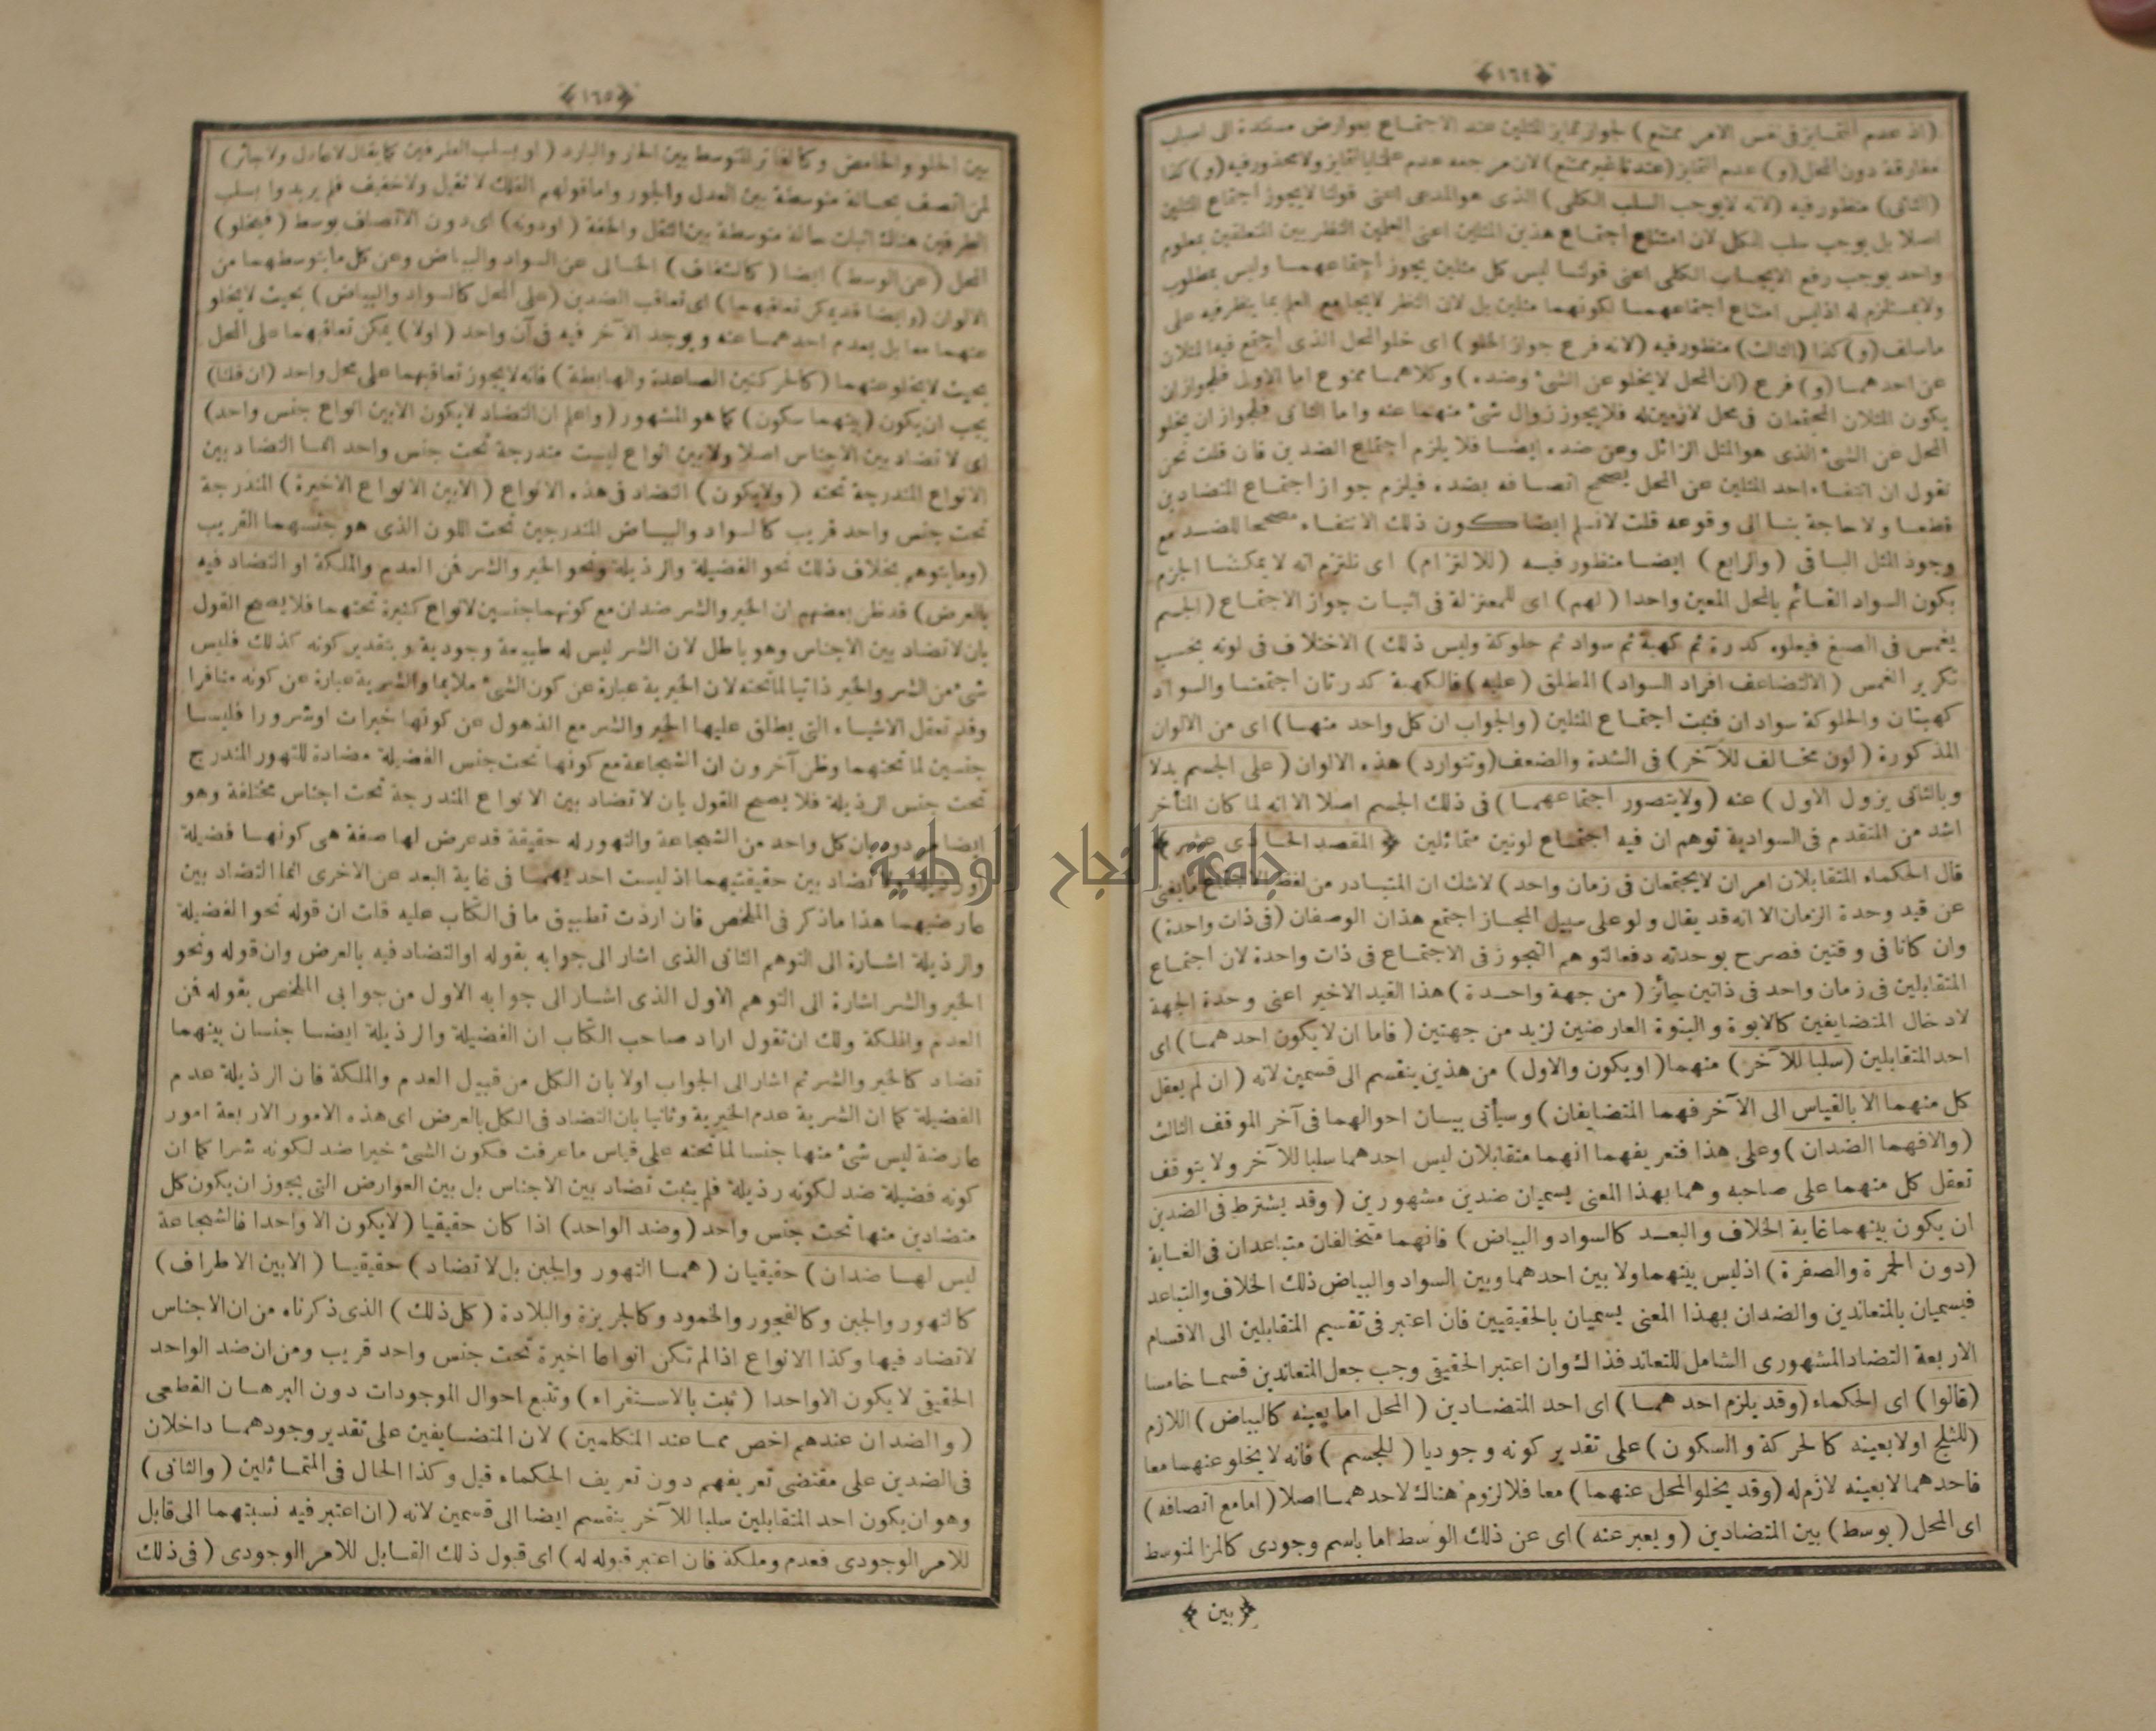 ﴿١٦٤﴾
(اذ عدم التمايز فى نفس الامر ممتنع) لجواز تمايز المثلين عند الاجتماع بعوارض مستندة الى اسباب
مفارقة دون المحل (و) عدم التمايز (عندنا غير ممتنع) لان مرجعه عدم علمنا بالتمايز ولا محذور فيه (و) كذا
(الثانى) منظور فيه (لانه لايوجب السلب الكلى) الذى هو المدعى اعنى قولنا لايجوز اجتماع المثلين
اصلا بل يوجب سلب الكل لان امتناع اجتماع هذين المثلين اعنى العلمين النظريين المتعلقين بمعلوم
واحد يوجب رفع الايجاب الكلى اعنى قولنا ليس كل مثلين يجوز اجتماعهما وليس بمطلوب
ولا بمستلزم له اذ ليس امتناع اجتماعهما لكونهما مثلين بل لان النظر لايجامع العلم بما ينظر فيه على
ماسلف (و) كذا (الثالث) منظور فيه (لانه فرع جواز الخلو) اى خلو المحل الذى اجتمع فيه المثلان
عن احدهما (و) فرع (ان المحل لايخلو عن الشئ وضده) وكلاهما ممنوع اما الاول فلجواز ان
يكون المثلان المجتمعان فى محل لازمين له فلا يجوز زوال شئ منهما عنه واما الثانى فلجواز ان يخلو
المحل عن الشئ الذى هو المثل الزائل وعن ضده ايضا فلا يلزم اجتماع الضدين فان قلت نحن
نقول ان انتفاء احد المثلين عن المحل يصحح اتصافه بضده فيلزم جواز اجتماع المتضادين
قطعا ولا حاجة بنا الى وقوعه قلت لانسلم ايضا كون ذلك الانتفاء مصححا للضد مع
وجود المثل الباقى (والرابع) ايضا منظور فيه (للالتزام) اى نلتزم انه لا يمكننا الجزم
بكون السواد القائم بالمحل المعين واحدا (لهم) اى للمعتزلة فى اثبات جواز الاجتماع (الجسم
يغمس فى الصبغ فيعلوه كدرة ثم كهبة ثم سواد ثم حلوكة وليس ذلك) الاختلاف فى لونه بحسب
تكرير الغمس (الالتضاعف افراد السواد) المطلق (عليه) فالكهبة كدرتان اجتمعتا والسواد
كهبتان والحلوكة سوادان فثبت اجتماع المثلين (والجواب ان كل واحد منهما) اى من الالوان
المذكورة (لون مخالف للآخر) فى الشدة والضعف (وتتوارد) هذه الالوان (على الجسم بدلا
وبالثانى يزول الاول) عنه (ولايتصور اجتماعهما) فى ذلك الجسم اصلا الا انه لما كان المتأخر
اشد من المتقدم فى السوادية توهم ان فيه اجتماع لونين متماثلين ﴿المقصد الحادى عشر﴾
قال الحكماء المتقابلان امران لايجتمعان فى زمان واحد) لاشك ان المتبادر من لفظ الاجتماع مايغنى
عن قيد وحدة الزمان الا انه قد يقال ولو على سبيل المجاز اجتمع هذان الوصفان (فى ذات واحدة)
وان كانا فى وقتين فصرح بوحدته دفعا لتوهم التجوز فى الاجتماع فى ذات واحدة لان اجتماع
المتقابلين فى زمان واحد فى ذاتين جائز (من جهة واحدة) هذا القيد الاخير اعنى وحدة الجهة
لادخال المتضايفين كالابوة والبنوة العارضين لزيد من جهتين (فاما ان لا يكون احدهما) اى
احد المتقابلين (سلبا للآخر) منهما (او يكون والاول) من هذين ينقسم الى قسمين لانه (ان لم يعقل
كل منهما الا بالقياس الى الآخر فهما المتضايفان) وسيأتى بيان احوالهما فى آخر الموقف الثالث
(والا فهما الضدان) وعلى هذا فتعريفهما انهما متقابلان ليس احدهما سلبا للآخر ولا يتوقف
تعقل كل منهما على صاحبه وهما بهذا المعنى يسميان ضدين مشهورين (وقد يشترط فى الضدين
ان يكون بينهما غاية الخلاف والبعد كالسواد والبياض) فانهما متخالفان متباعدان فى الغاية
(دون الحمرة والصفرة) اذ ليس بينهما ولا بين احدهما وبين السواد والبياض ذلك الخلاف والتباعد
فيسميان بالمتعاندين والضدان بهذا المعنى يسميان بالحقيقيين فان اعتبر فى تقسيم المتقابلين الى الاقسام
الاربعة التضاد المشهورى الشامل للتعاند فذاك وان اعتبر الحقيقى وجب جعل المتعاندين قسما خامسا
(قالوا) اى الحكماء (وقد يلزم احدهما) اى احد المتضادين (المحل اما بعينه كالبياض) اللازم
(للثلج اولا بعينه كالحركة والسكون) على تقدير كونه وجوديا (للجسم) فانه لا يخلو عنهما معا
فاحدهما لا بعينه لازم له (وقد يخلو المحل عنهما) معا فلا لزوم هناك لاحدهما اصلا (اما مع اتصافه)
اى المحل (بوسط) بين المتضادين (ويعبر عنه) اى عن ذلك الوسط اما باسم وجودى كالمز المتوسط
﴿بين﴾
﴿١٦٥﴾
بين الحلو والحامض وكالفاتر المتوسط بين الحار والبارد (او بسلب الطرفين كمايقال لا عادل ولا جائر)
لمن اتصف بحالة متوسطة بين العدل والجور واما قولهم الفلك لا ثقيل ولا خفيف فلم يريدوا بسلب
الطرفين هناك اثبات حالة متوسطة بين الثقل والخفة (اودونه) اى دون الاتصاف بوسط (فيخلو)
المحل (عن الوسط) ايضا (كالشفاف) الخالى عن السواد والبياض وعن كل ما يتوسطهما من
الالوان (وايضا قد يمكن تعاقبهما) اى تعاقب الضدين (على المحل كالسواد والبياض) بحيث لايخلو
عنهما معا بل يعدم احدهما عنه ويوجد الآخر فيه فى آن واحد (اولا) يمكن تعاقبهما على المحل
بحيث لايخلو عنهما (كالحركتين الصاعدة والهابطة) فانه لايجوز تعاقبهما على محل واحد (ان قلنا)
يجب ان يكون (بينهما سكون) كما هو المشهور (واعلم ان التضاد لايكون الابين انواع جنس واحد)
اى لا تضاد بين الاجناس اصلا ولا بين انواع ليست مندرجة تحت جنس واحد انما التضاد بين
الانواع المندرجة تحته (ولايكون) التضاد فى هذه الانواع (الابين الانواع الاخيرة) المندرجة
تحت جنس واحد قريب كالسواد والبياض المندرجين تحت اللون الذى هو جنسهما القريب
(ومايتوهم بخلاف ذلك نحو الفضيلة والرذيلة ونحو الخير والشر فمن العدم والملكة او التضاد فيه
بالعرض) قد ظن بعضهم ان الخير والشر ضدان مع كونهما جنسين لانواع كثيرة تحتهما فلا يصح القول
بان لاتضاد بين الاجناس وهو باطل لان الشر ليس له طبيعة وجودية وبتقدير كونه كذلك فليس
شئ من الشر والخير ذاتيا لماتحته لان الخيرية عبارة عن كون الشئ ملايما والشرية عبارة عن كونه منافرا
وقد تعقل الاشياء التى يطلق عليها الخير والشر مع الذهول عن كونها خيرات او شرورا فليسا
جنسين لما تحتهما وظن آخرون ان الشجاعة مع كونها تحت جنس الفضيلة مضادة للتهور المندرج
تحت جنس الرذيلة فلا يصح القول بان لا تضاد بين الانواع المندرجة تحت اجناس مختلفة وهو
ايضا مردود بان كل واحد من الشجاعة والتهور له حقيقة قد عرض لها صفة هى كونها فضيلة
تضاد بين حقيقتيهما اذ ليست احديهما فى غاية البعد عن الاخرى انما التضاد بين
عارضيهما هذا ماذكر فى الملخص فان اردت تطبيق ما فى الكتاب عليه قلت ان قوله نحو الفضيلة
والرذيلة اشارة الى التوهم الثانى الذى اشار الى جوابه بقوله او التضاد فيه بالعرض وان قوله ونحو
الخير والشر اشارة الى التوهم الاول الذى اشار الى جوابه الاول من جوابى الملخص بقوله فمن
العدم والملكة ولك ان تقول اراد صاحب الكتاب ان الفضيلة والرذيلة ايضا جنسان بينهما
تضاد كالخير والشر ثم اشار الى الجواب اولا بان الكل من قبيل العدم والملكة فان الرذيلة عدم
الفضيلة كما ان الشرية عدم الخيرية وثانيا بان التضاد فى الكل بالعرض اى هذه الامور الاربعة امور
عارضة ليس شئ منها جنسا لما تحته على قياس ماعرفت فكون الشئ خيرا ضد لكونه شرا كما ان
كونه فضيلة ضد لكونه رذيلة فلم يثبت تضاد بين الاجناس بل بين العوارض التى يجوز ان يكون كل
متضادين منها تحت جنس واحد (وضد الواحد) اذا كان حقيقيا (لايكون الا واحدا فالشجاعة
ليس لها ضدان) حقيقيان (هما التهور والجبن بل لا تضاد) حقيقيا (الابين الاطراف)
كالتهور والجبن وكالفجور والخمود وكالجربزة والبلادة (كل ذلك) الذى ذكرناه من ان الاجناس
لاتضاد فيها وكذا الانواع اذا لم تكن انواعا اخيرة تحت جنس واحد قريب ومن ان ضد الواحد
الحقيقى لا يكون الاواحدا (ثبت بالاستقراء) وتتبع احوال الموجودات دون البرهان القطعى
(والضدان عندهم اخص مما عند المتكلمين) لان المتضايفين على تقدير وجودهما داخلان
فى الضدين على مقتضى تعريفهم دون تعريف الحكماء قيل وكذا الحال فى المتماثلين (والثانى)
وهو ان يكون احد المتقابلين سلبا للآخر ينقسم ايضا الى قسمين لانه (ان اعتبر فيه نسبتهما الى قابل
للامر الوجودى فعدم وملكة فان اعتبر قبوله له) اى قبول ذلك القابل للامر الوجودى (فى ذلك
جامعة النجاح الوطنية